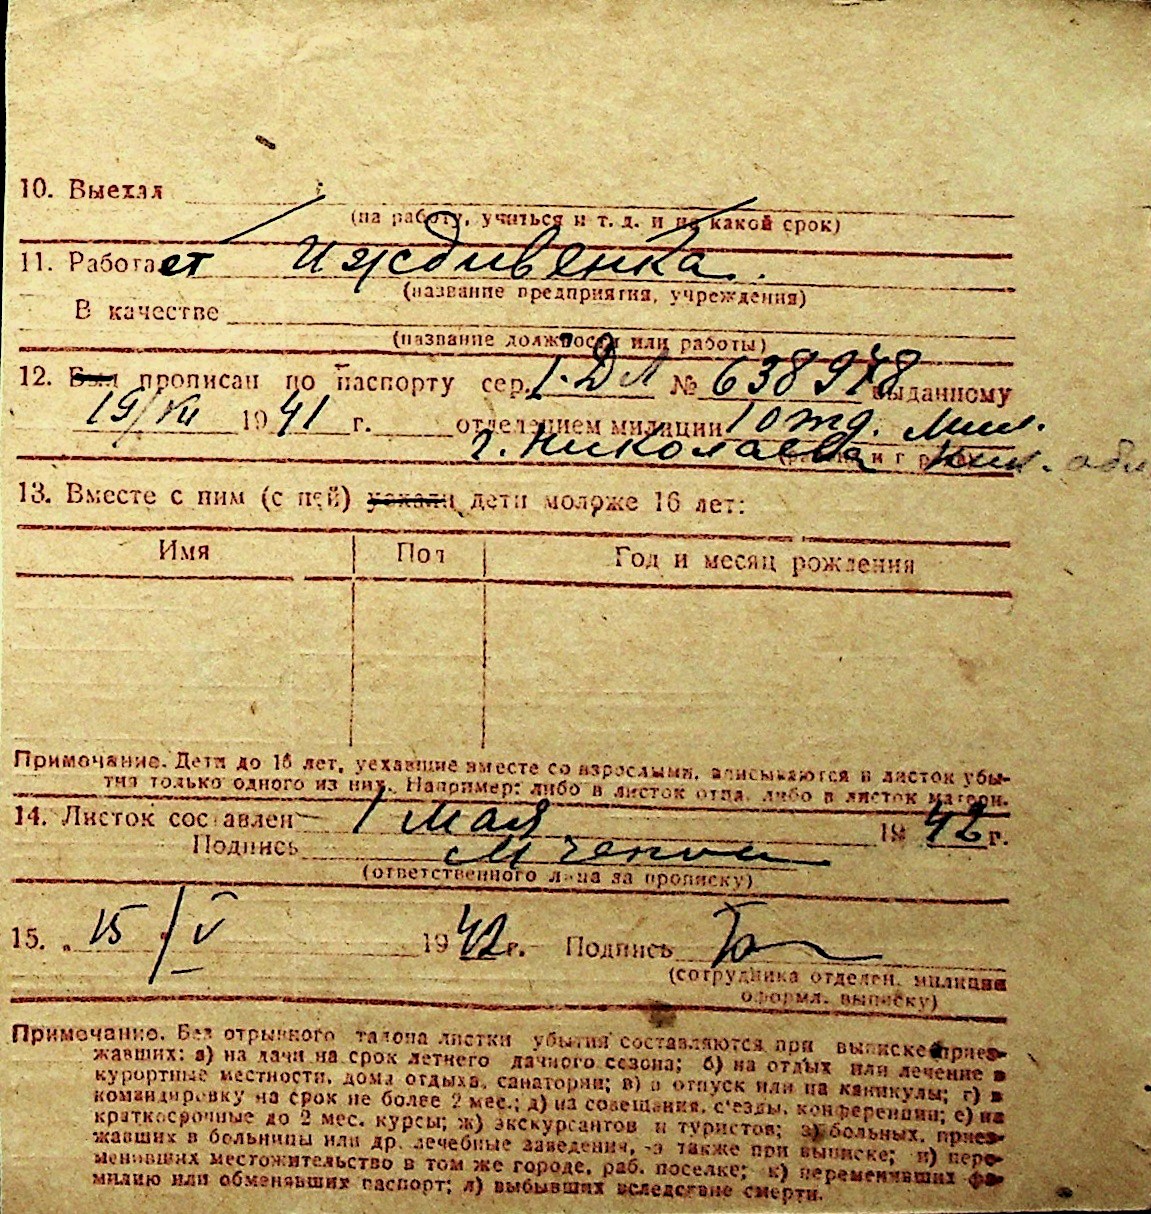 10. Выехал
(на работу, учиться и т. д. и на какой срок)
11. Работает Иждивенка.
(название предприятия, учреждения)
В качестве
(название должности или работы)
12. Был прописан по паспорту сер. I-ДЛ № 638978 выданному
19/VII 1941 г. отделением милиции 10 жд. мил.
г. Николаева Ник. обл
13. Вместе с ним (с ней) уехали дети моложе 16 лет:
Имя Пол Год и месяц рождения
Примечание. Дети до 16 лет, уехавшие вместе со взрослыми, вписываются в листок убы-
тия только одного из них. Например: либо в листок отца, либо в листок матери.
14. Листок составлен 1 мая 1942 г.
Подпись
(ответственного лица за прописку)
15. „ 15 / V 1942 г. Подпись
(сотрудника отделен. милиции
оформл. выписку)
Примечание. Без отрывного талона листки убытия составляются при выписке приез-
жавших: а) на дачи на срок летнего дачного сезона; б) на отдых или лечение в
курортные местности, дома отдыха, санатории; в) в отпуск или на каникулы; г) в
командировку на срок не более 2 мес.; д) на совещания, с'езды, конференции; е) на
краткосрочные до 2 мес. курсы; ж) экскурсантов и туристов; з) больных, приез-
жавших в больницы или др. лечебные заведения, а также при выписке; и) пере-
менивших местожительство в том же городе, раб. поселке; к) переменивших фа-
милию или обменявших паспорт; л) выбывших вследствие смерти.